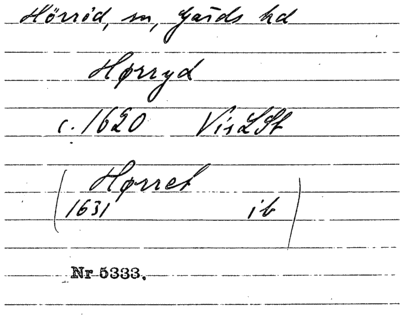 Hörröd, sn, Gärds hd
Hørryd
c. 1620 VisLSt
(Hørret
1631 ib)
Nr 5333.